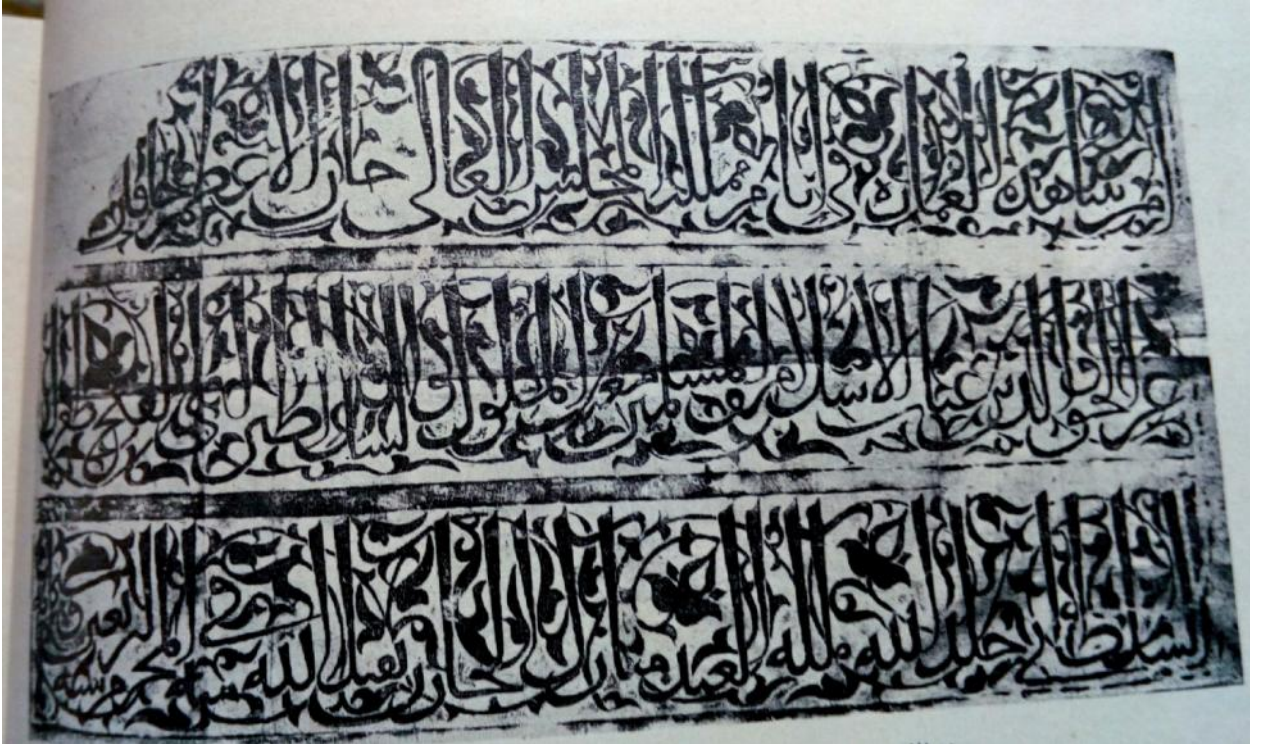 امر ببناء هذه العمارة في ايام مملكة المجلس العالي خان الاعظم خاقان
عز الحق والدين غياث الاسلام والمسلمين مغيث الملوك والسلاطين ابي الفتح طغرل
السلطاني خلد الله ملكه العبد مبارك الخازن تقبل الله منه في المحرم سنة